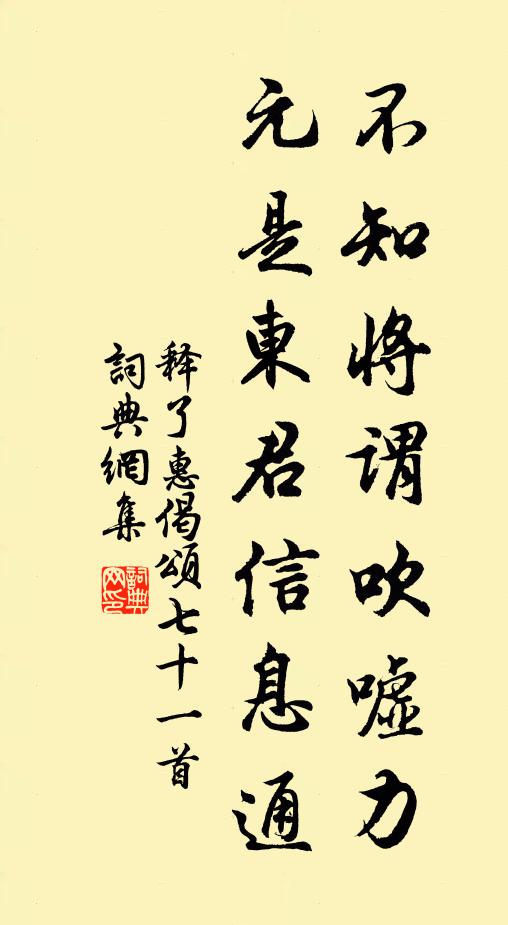 不知将謂吹噓力
元是東君信息通
释了惠偈頌七十一首
詞典網集
詞典網印